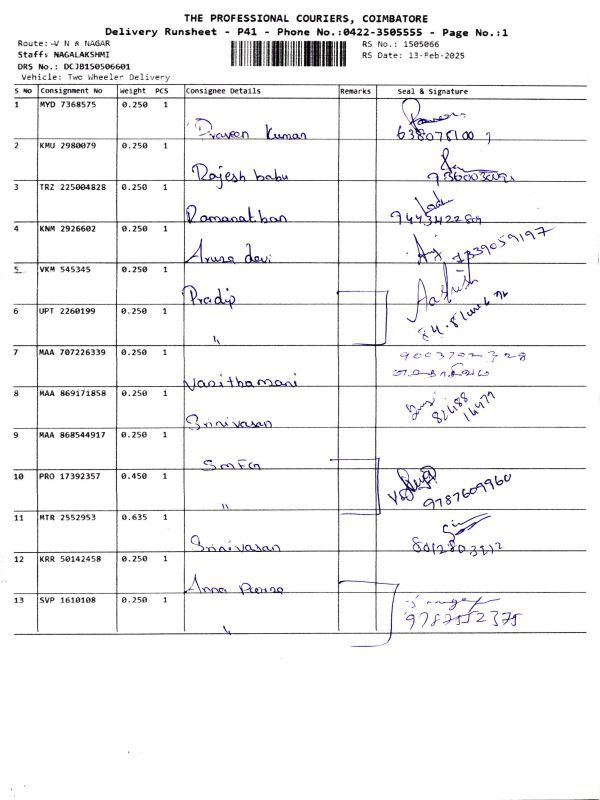 THE PROFESSIONAL COURIERS, COIMBATORE
Delivery Runsheet - P41 - Phone No.:0422-3505555 - Page No.:1
Route: V N R NAGAR
RS No.: 1505066
Staff: NAGALAKSHMI
RS Date: 13-Feb-2025
DRS No.: DCJB150506601
Vehicle: Two Wheeler Delivery
S No Consignment No Weight PCS Consignee Details Remarks Seal & Signature
1 MYD 7368575 0.250 1
Praveen Kumar
2 KMU 2980079 0.250 1
Rajesh babu
3 TRZ 225004828 0.250 1
Ramanathan 9443422809
4 KNM 2926602 0.250 1
Aruna devi
5 VKM 545345 0.250 1
Pradip
6 UPT 2260199 0.250 1
"
7 MAA 707226339 0.250 1 9003702328
Vasithamani
8 MAA 869171858 0.250 1 82488 14479
Srinivasan
9 MAA 868544917 0.250 1
SMFG
10 PRO 17392357 0.450 1
" 9787609960
11 MTR 2552953 0.635 1
Srinivasan 8012803212
12 KRR 50142458 0.250 1
Anna
13 SVP 1610108 0.250 1 9787552375
"